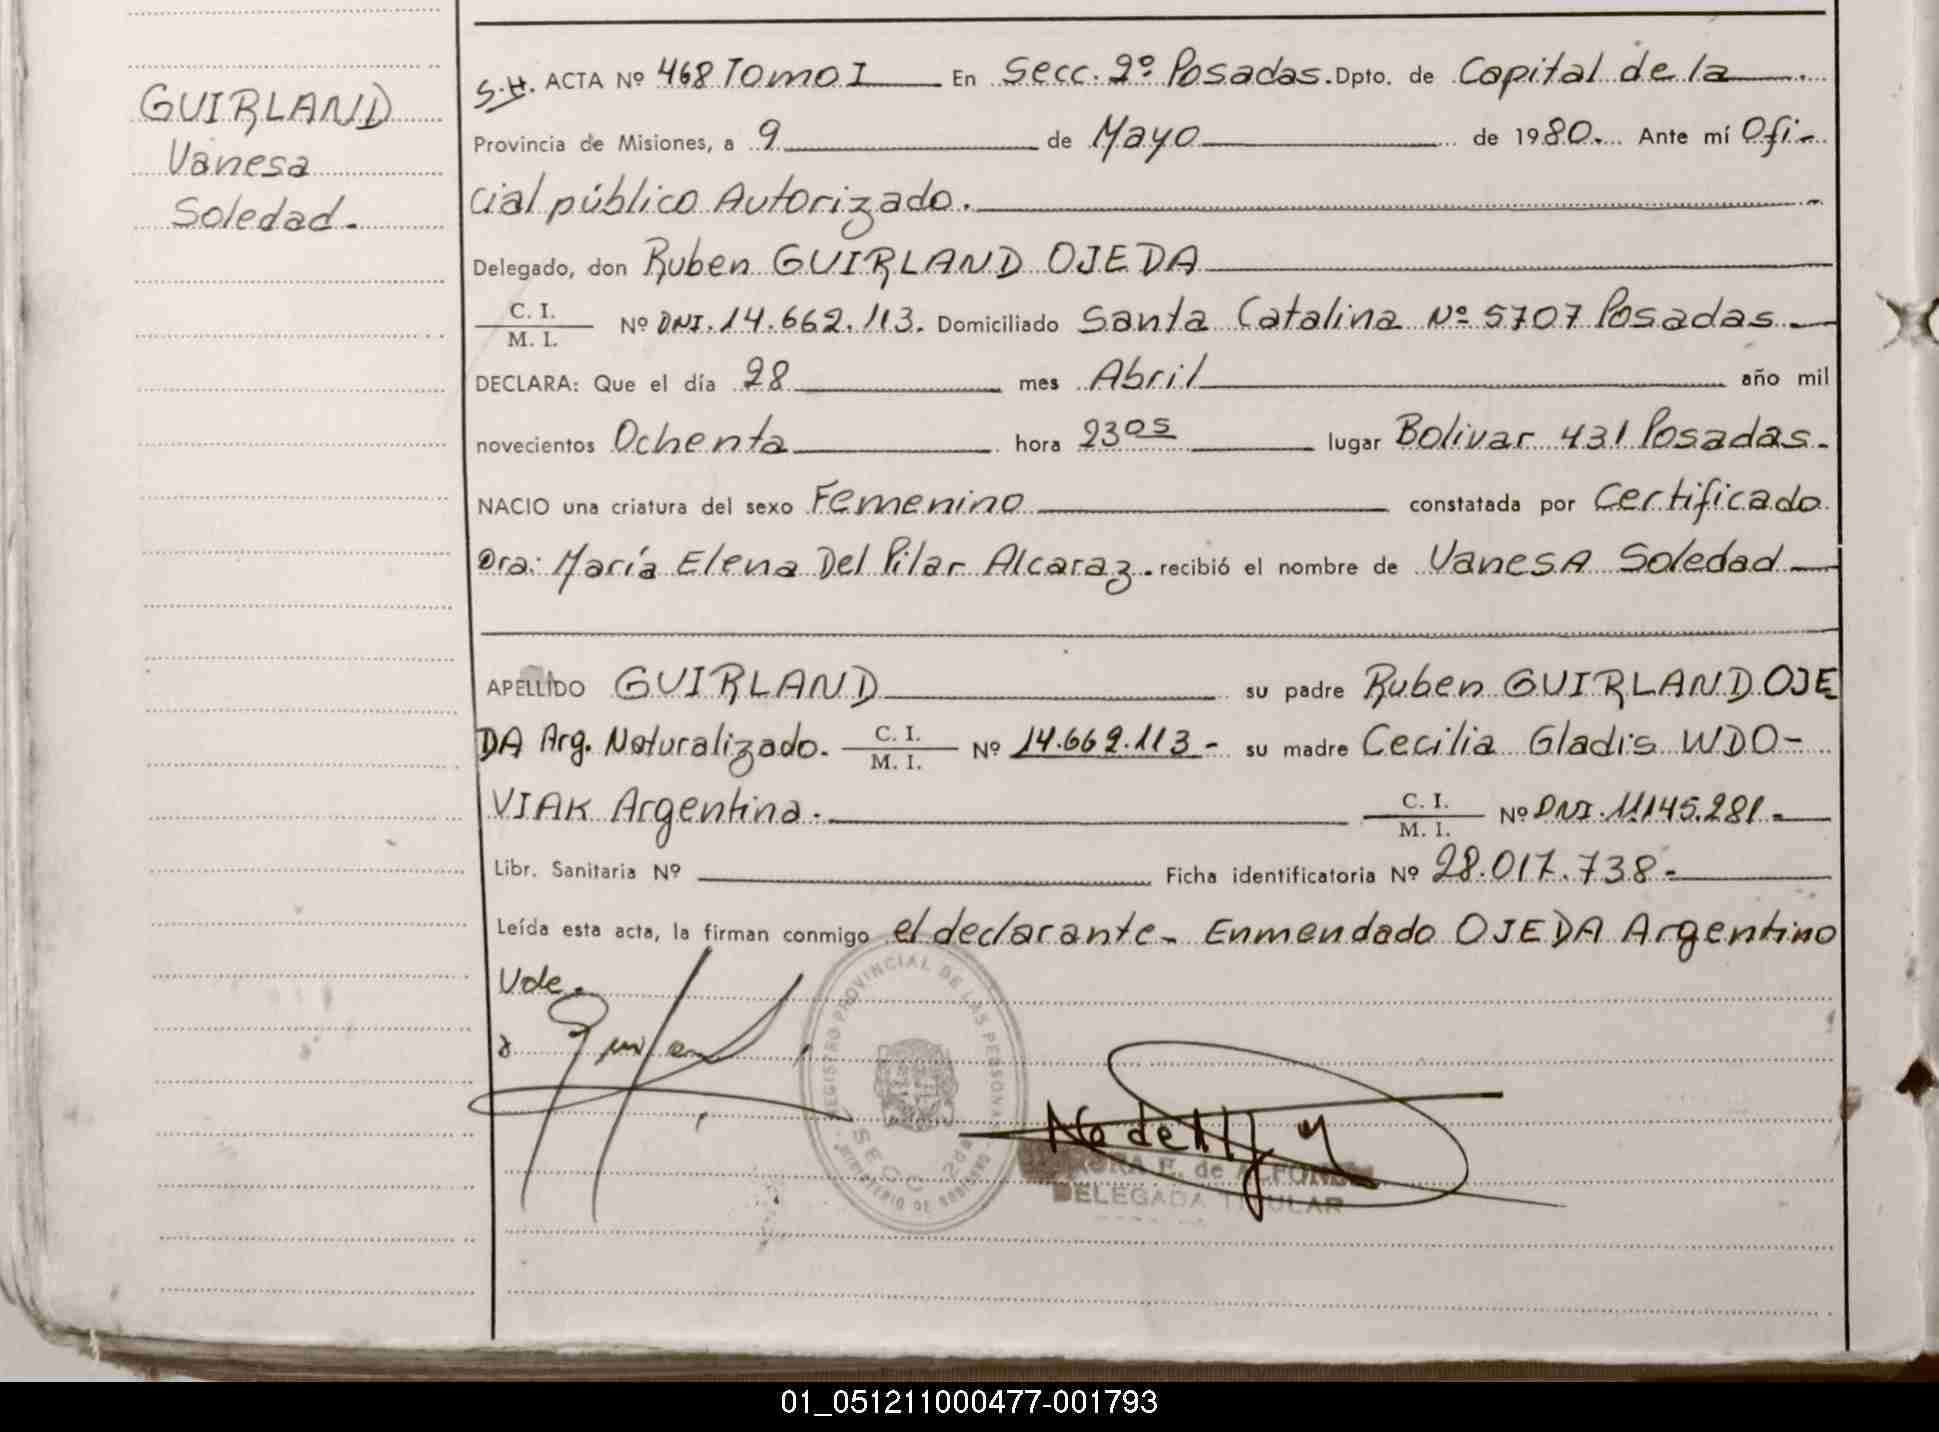 GUIRLAND
Vanesa
Soledad.
S.H. ACTA Nº 468 Tomo I En Secc. 2º Posadas. Dpto. de Capital de la
Provincia de Misiones, a 9 de Mayo de 1980. Ante mí Ofi-
cial público Autorizado.
Delegado, don Ruben GUIRLAND OJEDA
C. I.
M. I. Nº DNI. 14.662.113. Domiciliado Santa Catalina Nº 5707 Posadas
DECLARA: Que el día 28 mes Abril año mil
novecientos Ochenta hora 23 05 lugar Bolivar 431 Posadas-
NACIO una criatura del sexo Femenino constatada por Certificado
Dra: María Elena Del Pilar Alcaraz. recibió el nombre de VanesA Soledad
APELLIDO GUIRLAND su padre Ruben GUIRLAND OJE
DA Arg. Naturalizado. C. I. M. I. Nº 14.662.113- su madre Cecilia Gladis WDO-
VIAK Argentina. C. I. M. I. Nº DNI. 11.145.281.
Libr. Sanitaria Nº Ficha identificatoria Nº 28.017.738-
Leída esta acta, la firman conmigo el declarante- Enmendado OJEDA Argentino
Vale.
REGISTRO PROVINCIAL DE LAS PERSONAS
SECC. 2da
MINISTERIO DE GOBIERNO
E. de ALFONSO
DELEGADA TITULAR
01_051211000477-001793